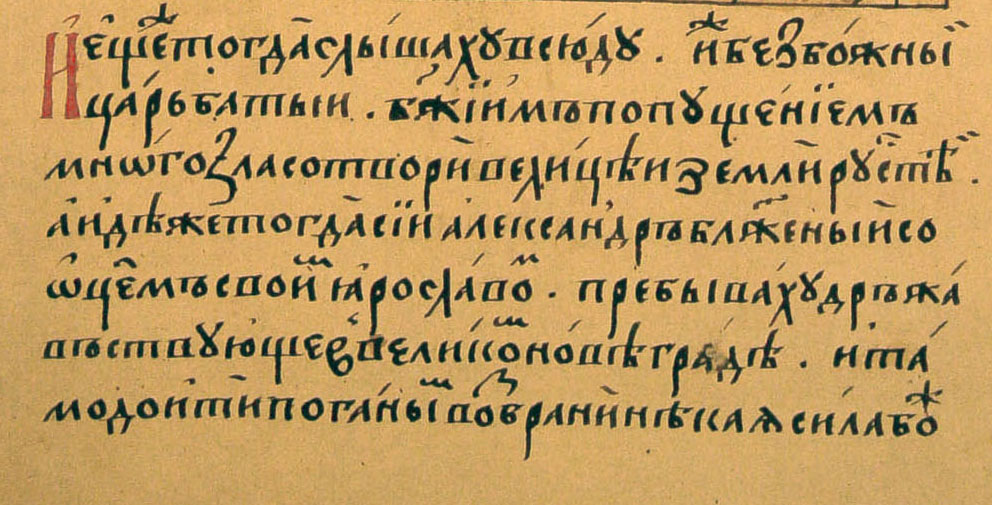 Неще́же тогда̀ слы́шаху всю́ду . и҆ безбо́жныи
ца́рь батыи . бж҃їимъ попуще́нїемъ
мно́го зла сотворѝ вели́цѣи землѝ ру́стѣи .
а҆ндѣже тогда̀ сїи алекса́ндръ блаже́ныи со
ѻ҆ц҃емъ свои́мъ ꙗ҆росла́вомъ . пребыва́ху држа́
вствую́ще в вели́комъ но́вѣгра́дѣ . и та́
мо доитѝ пога́нымъ возбранѝ нѣ́каꙗ си́ла бо